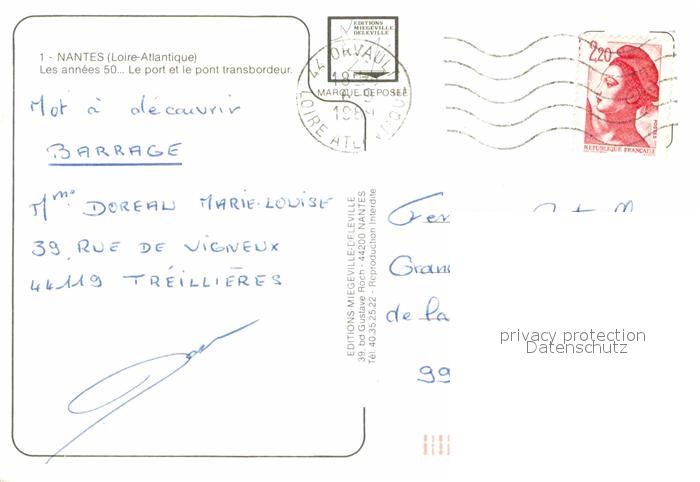 EDITIONS
MIEGEVILLE
DELEVILLE
MARQUE DEPOSEE
1 - NANTES (Loire-Atlantique)
Les années 50... Le port et le pont transbordeur.
44 ORVAULT
LOIRE ATLANTIQUE
2,20
POSTES
REPUBLIQUE FRANÇAISE
Mot à découvrir
BARRAGE
Mme DOREAU MARIE-LOUISE
39, RUE DE VIGNEUX
44119 TREILLIÈRES
EDITIONS MIEGEVILLE-DELEVILLE
39, bd Gustave Roch - 44200 NANTES
Tél. 40.35.25.22 - Reproduction Interdite
de la
99
privacy protection
Datenschutz